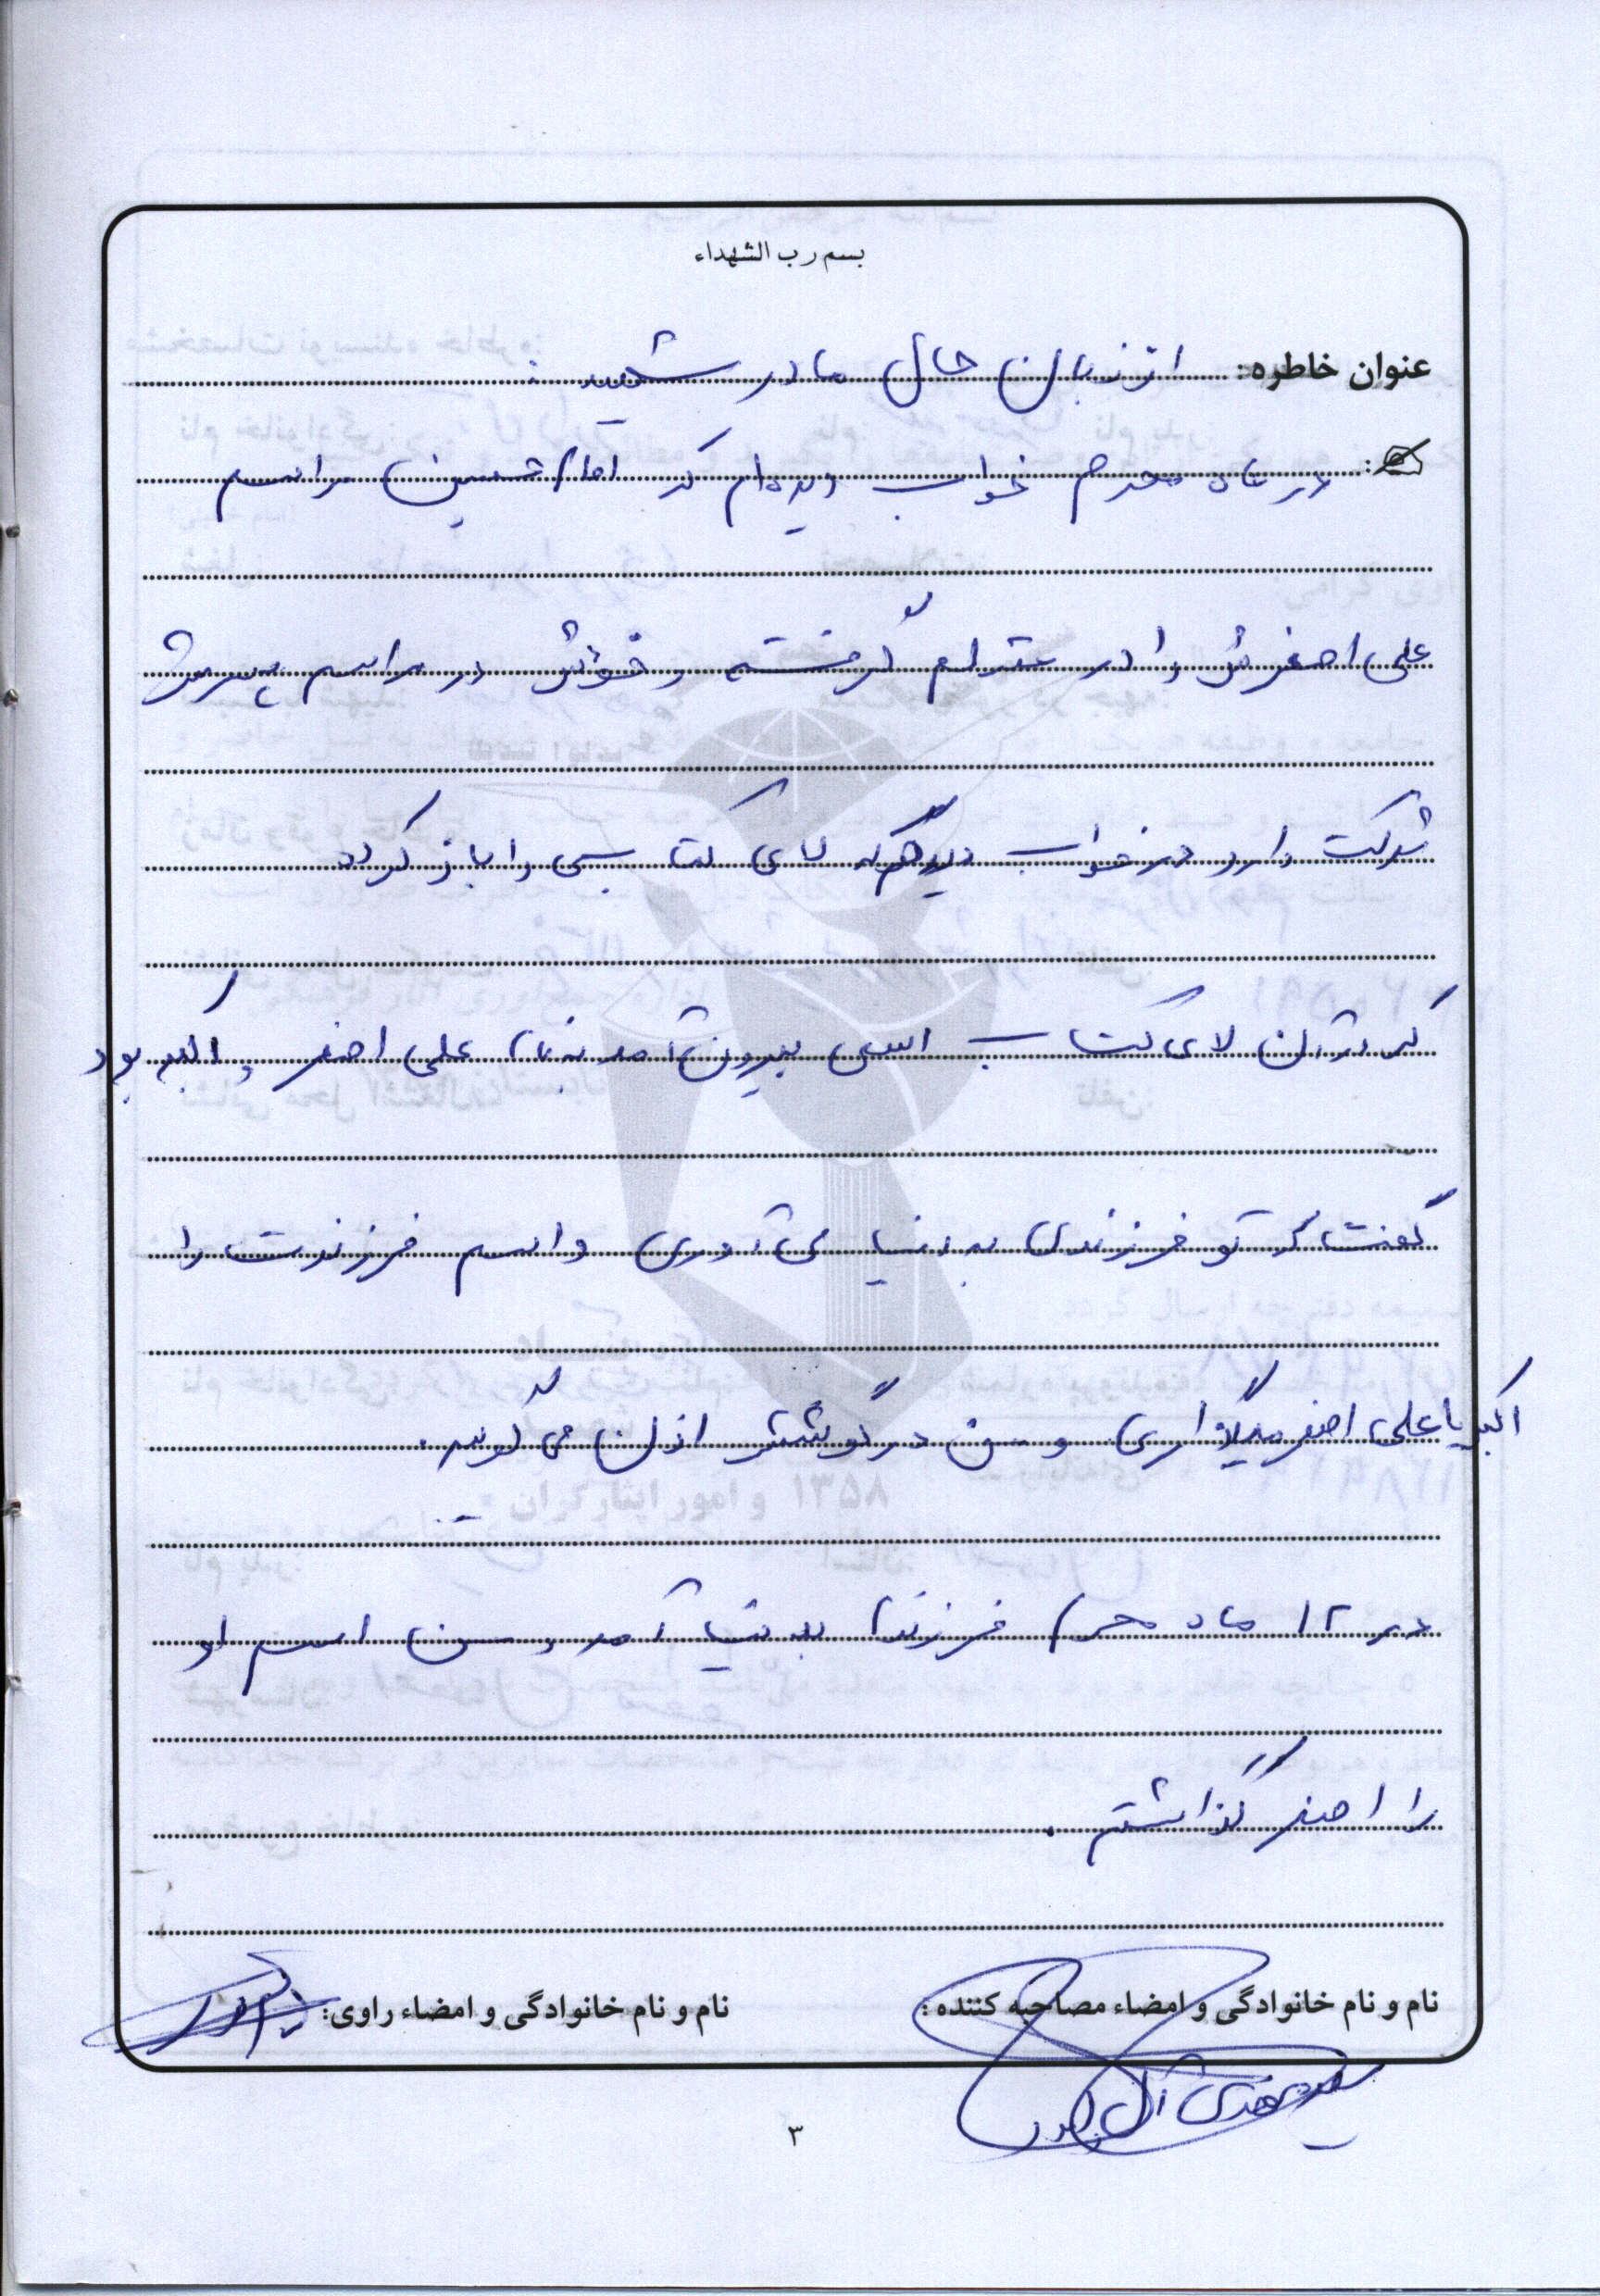 بسم رب الشهداء
عنوان خاطره: از زبان حال مادر شهید :
در ماه محرم خواب دیده‌ام که امام حسین مراسم
علی اصغرش را در منزلم گرفته و خودش در مراسم پسرش
شرکت دارد در خواب دیدم که لای کتابی را باز کرد
که در آن لای کتاب اسمی بیرون آمد بنام علی اصغر و اکبر بود
گفت که تو فرزندی به دنیا می آوری و اسم فرزندت را
اکبر یا علی اصغر میگذاری و سن در گوشش اذان می گویید.
در ۱۲ ماه محرم فرزندم به دنیا آمد و من اسم او
را اصغر گذاشتم .
نام و نام خانوادگی و امضاء مصاحبه کننده:
نام و نام خانوادگی و امضاء راوی:
۳